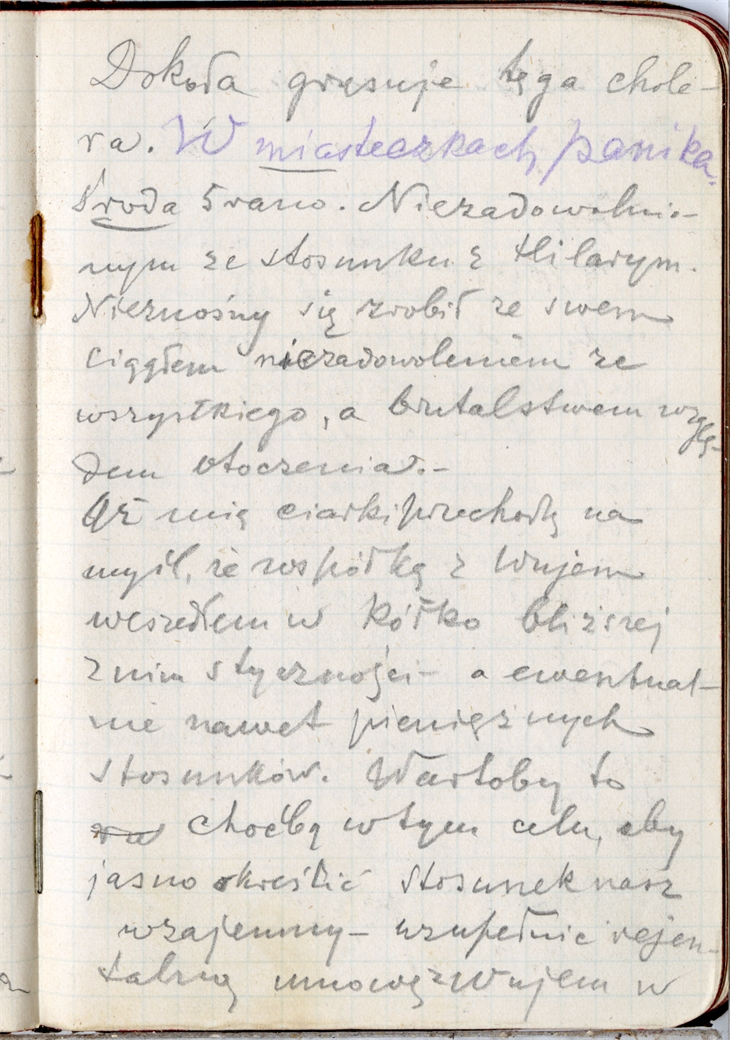 Dokoła grasuje tęga chole-
ra. W miasteczkach panika.
Środa 5 rano. Niezadowolnio-
nym ze stosunku z Hilarym.
Nieznośny się zrobił ze swem
ciągłem niezadowoleniem ze
wszystkiego, a brutalstwem wzglę-
dem otoczenia.-
Aż mię ciarki przechodzą na
myśl, że wspólką z Wujem
weszedłem w kółko bliższej
z nim styczności - a ewentual-
nie nawet pieniężnych
stosunków. Wartoby to
choćby w tym celu, aby
jasno określić stosunek nasz
wzajemny - uzupełnić rejen-
talną umowę z Wujem w